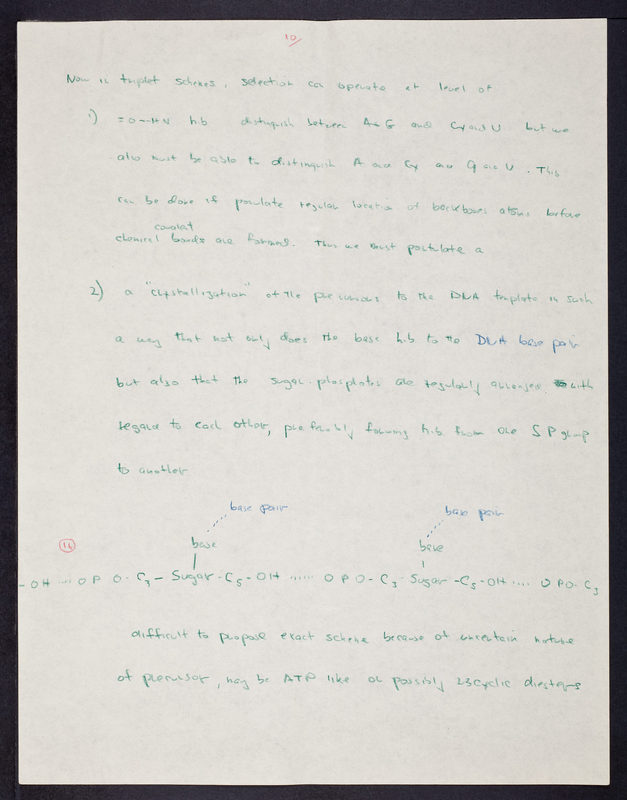 10/
Now in triplet schemes, selection can operate at level of
1) =O---HN h.b distinguish between A + G and Cy and U but we
also must be able to distinguish A and Cy and G and U. This
can be done if postulate regular location of backbones atoms before
covalent
chemical bonds are formed. Thus we must postulate a
2) a "crystallization" of the precursors to the DNA template in such
a way that not only does the base h.b to the DNA base pair
but also that the sugar-phosphates are regularly arranged with
regard to each other, preferably forming h.b from one S P group
to another
base pair base pair
base base
16
- OH .... O P O - C3 - Sugar - C5 - OH ...... O P O - C3 - Sugar - C5 - OH .... O P O - C3
difficult to propose exact scheme because of uncertain nature
of precursor, may be ATP like or possibly 23 cyclic diesters